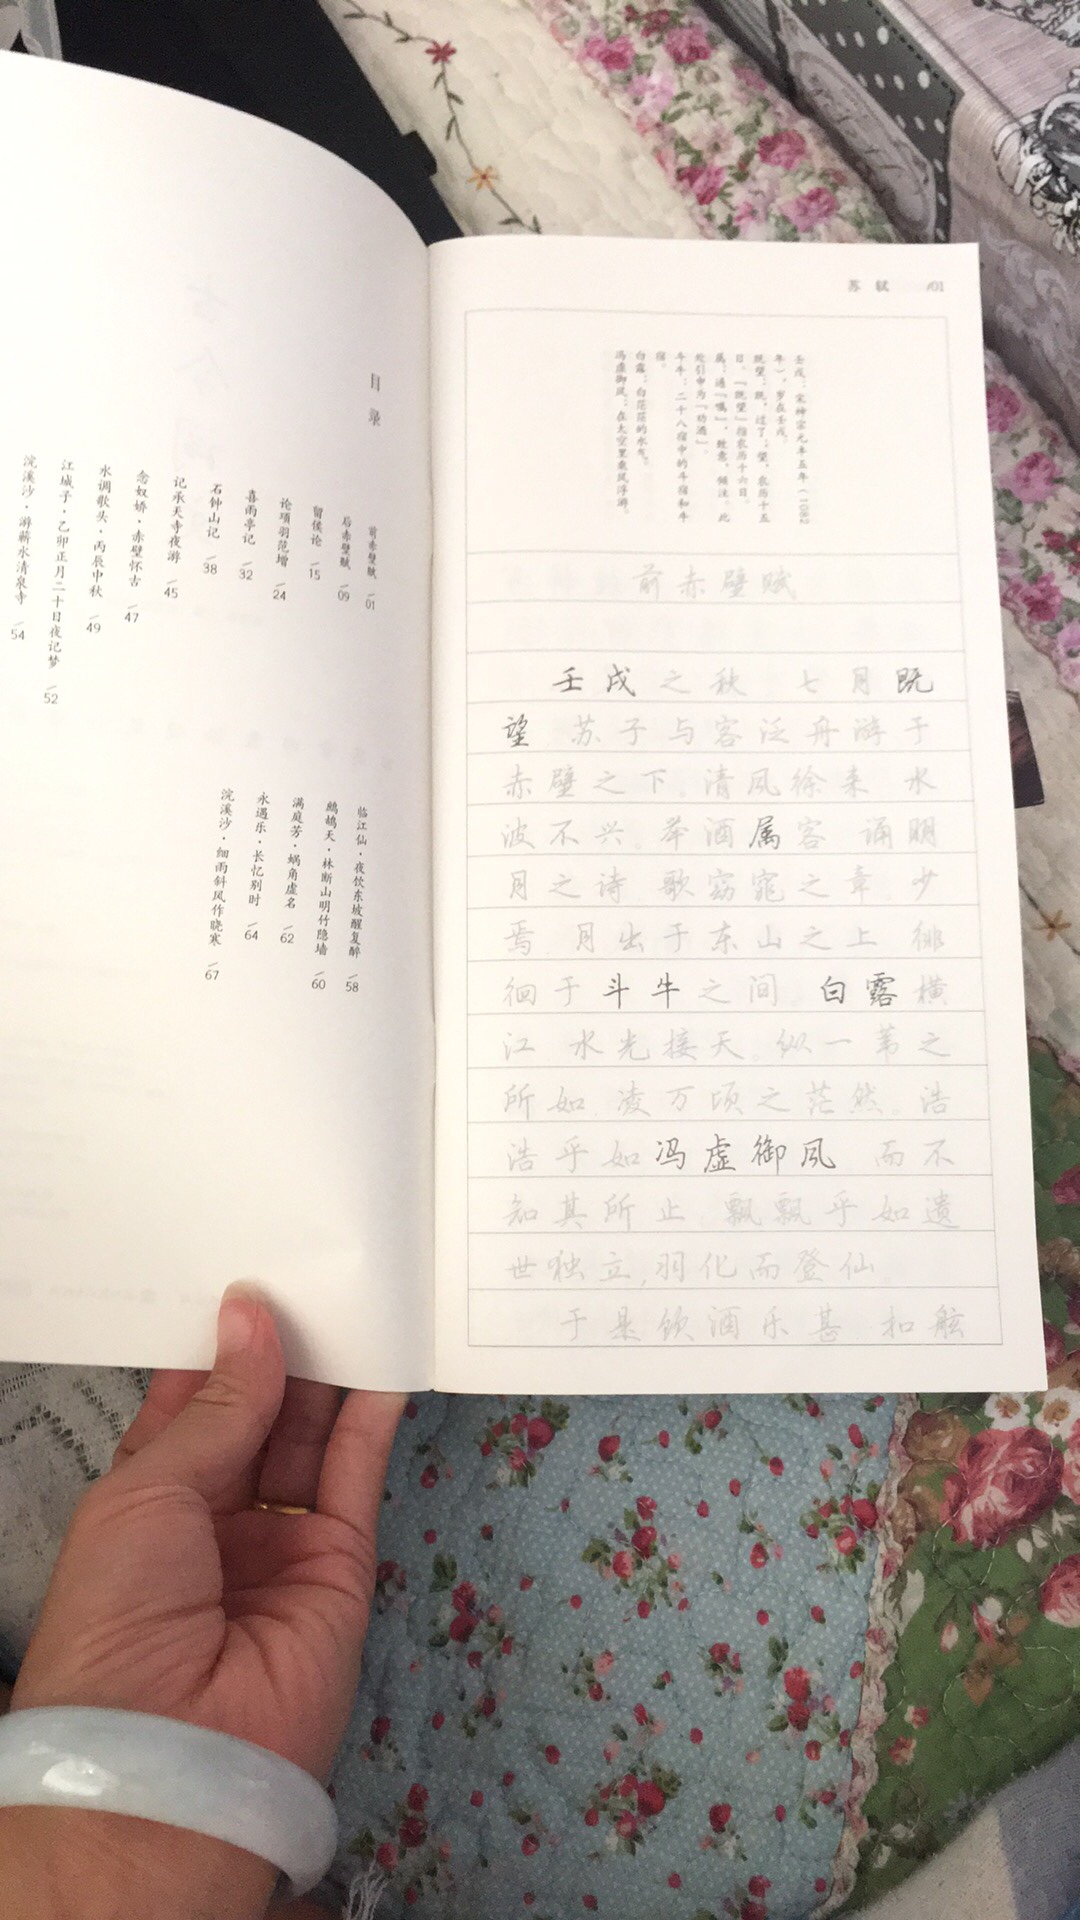 目录
前赤壁赋 /01
后赤壁赋 /09
留侯论 /15
论项羽范增 /24
喜雨亭记 /32
石钟山记 /38
记承天寺夜游 /45
念奴娇·赤壁怀古 /47
水调歌头·丙辰中秋 /49
江城子·乙卯正月二十日夜记梦 /52
浣溪沙·游蕲水清泉寺 /54
临江仙·夜饮东坡醒复醉 /58
鹧鸪天·林断山明竹隐墙 /60
满庭芳·蜗角虚名 /62
永遇乐·长忆别时 /64
浣溪沙·细雨斜风作晓寒 /67
苏轼 /01
壬戌：宋神宗元丰五年（1082
年），岁在壬戌。
既望：既，过了；望，农历十五
日。“既望”指农历十六日。
属：通“嘱”，致意，倾注。此
处引申为“劝酒”。
斗牛：二十八宿中的斗宿和牛
宿。
白露：白茫茫的水气。
冯虚御风：在太空里乘风浮游。
前赤壁赋
壬戌之秋 七月既
望 苏子与客泛舟游于
赤壁之下。清风徐来 水
波不兴。举酒属客 诵明
月之诗 歌窈窕之章。少
焉 月出于东山之上 徘
徊于斗牛之间。白露横
江 水光接天。纵一苇之
所如 凌万顷之茫然。浩
浩乎如冯虚御风 而不
知其所止 飘飘乎如遗
世独立,羽化而登仙。
于是饮酒乐甚 扣舷